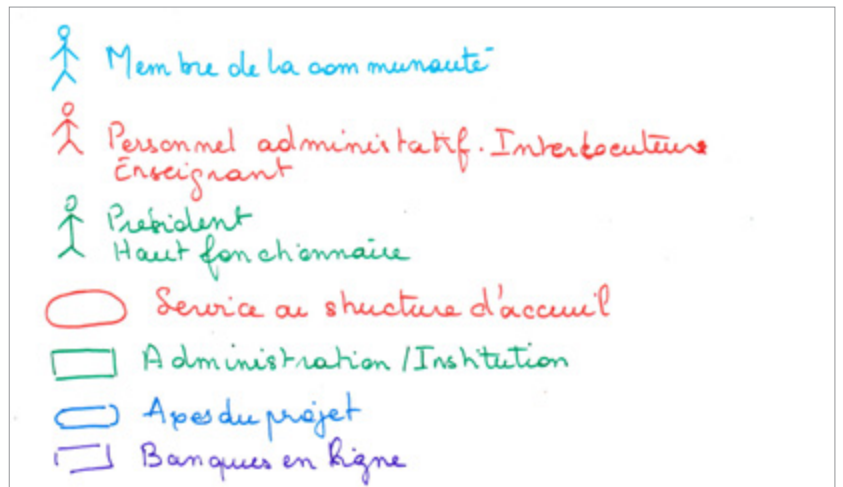 Membre de la communauté
Personnel administratif. Interlocuteurs
Enseignant
Président
Haut fonctionnaire
Service ou structure d'accueil
Administration / Institution
Axes du projet
Banques en ligne